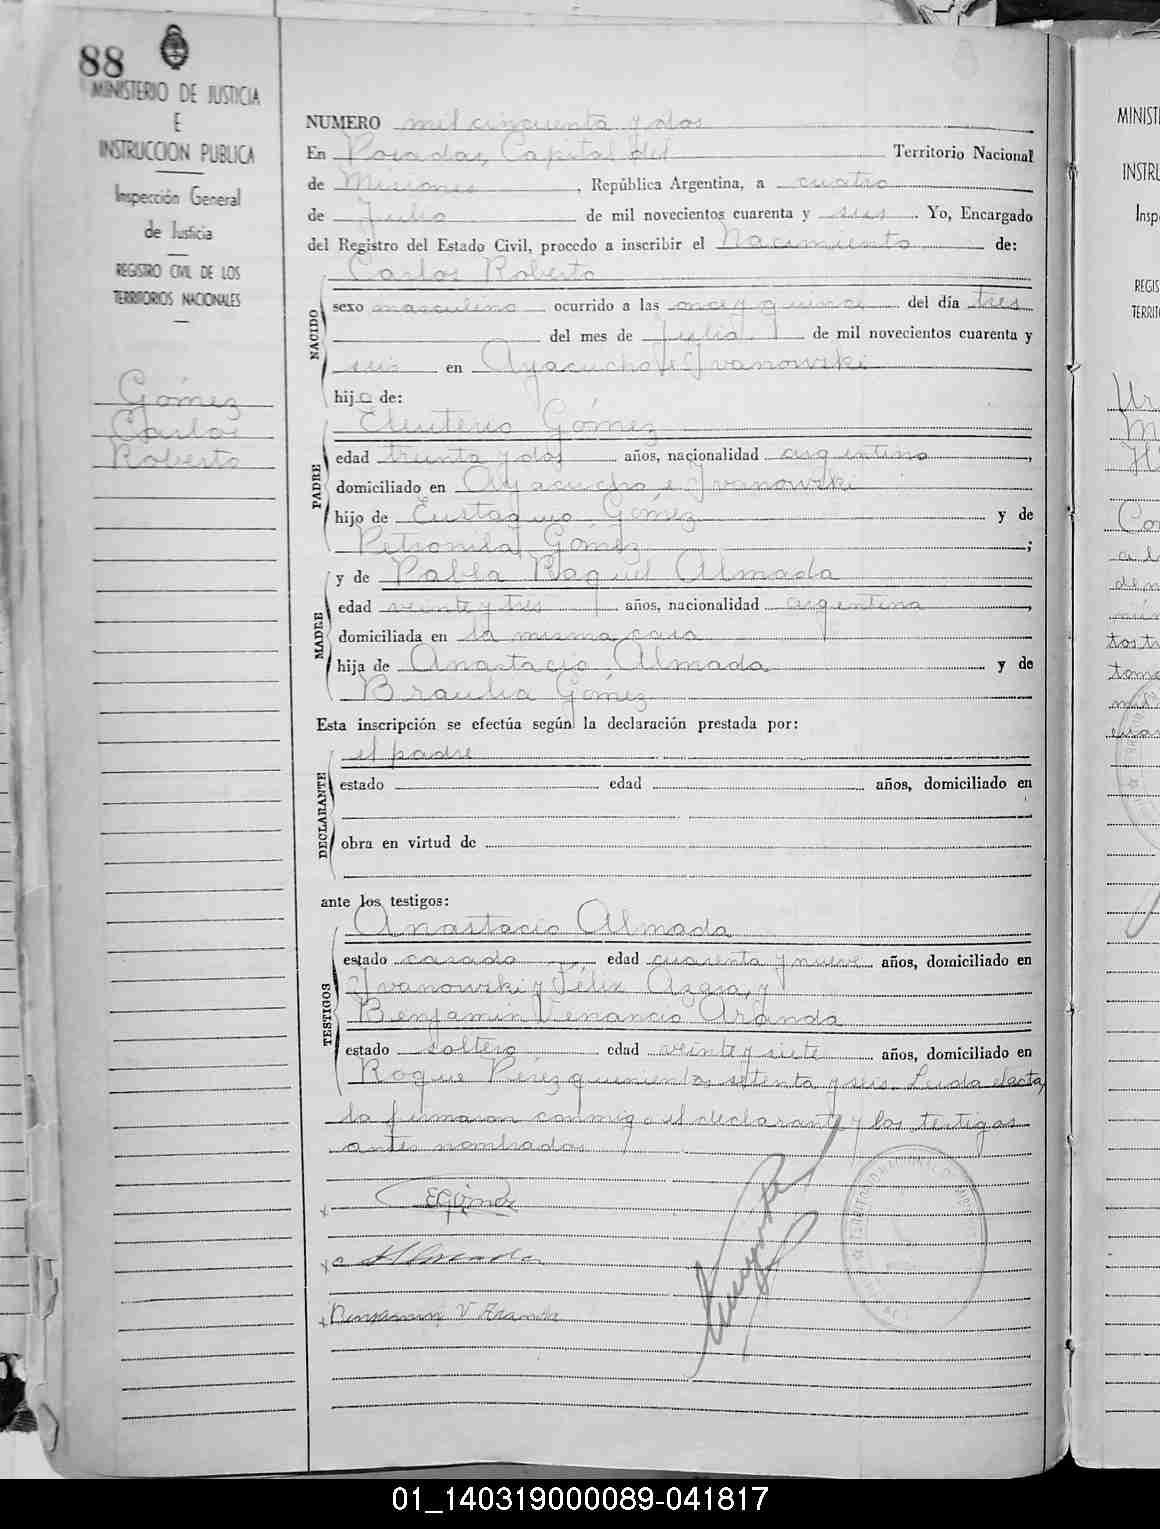 88
MINISTERIO DE JUSTICIA
E
INSTRUCCION PUBLICA
Inspección General
de Justicia
REGISTRO CIVIL DE LOS
TERRITORIOS NACIONALES
Gómez
Carlos
Roberto
NUMERO mil cincuenta y dos
En Posadas, Capital del Territorio Nacional
de Misiones, República Argentina, a cuatro
de Julio de mil novecientos cuarenta y seis. Yo, Encargado
del Registro del Estado Civil, procedo a inscribir el Nacimiento de:
Carlos Roberto
NACIDO
sexo masculino ocurrido a las once y quince del día tres
del mes de Julio de mil novecientos cuarenta y
seis en Ayacucho e Ivanowski
hijo de:
PADRE
Eleuterio Gómez
edad treinta y dos años, nacionalidad argentino,
domiciliado en Ayacucho e Ivanowski
hijo de Eustaquio Gómez y de
Petronila Gómez;
MADRE
y de Pabla Raquel Almada
edad veinte y tres años, nacionalidad argentina,
domiciliada en la misma casa
hija de Anastacio Almada y de
Braulia Gómez
Esta inscripción se efectúa según la declaración prestada por:
el padre
DECLARANTE
estado edad años, domiciliado en
obra en virtud de
ante los testigos:
TESTIGOS
Anastacio Almada
estado casado edad cuarenta y nueve años, domiciliado en
Ivanowski y Félix Azara, y
Benjamin Venancio Aranda
estado soltero edad veinte y siete años, domiciliado en
Roque Pérez quinientos setenta y seis. Leida el acta,
la firmaron conmigo el declarante y los testigos
antes nombrados
EGómez
Benjamin V Aranda
MINIST
INSTRU
Insp
REGIS
TERRIT
01_140319000089-041817